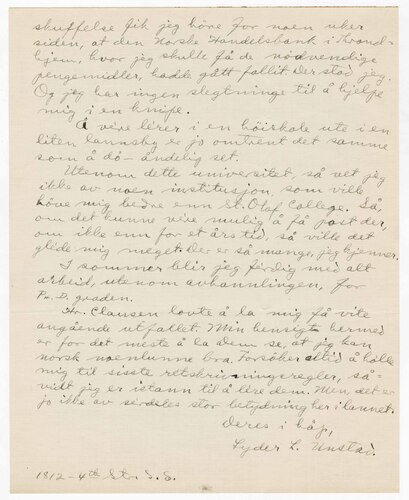 skuffelse fik jeg höre for noen uker
siden, at den Norske Handelsbank i Trond-
hjem, hvor jeg skulle få de nödvendige
pengemidler, hadde gått fallit. Der stod jeg.
Og jeg har ingen slegtninge til å hjelpe
mig i en knipe.
Å vere lerer i en höiskole ute i en
liten lannsby er jo omtrent det samme
som å dö - åndelig set.
Utenom dette universitet, så vet jeg
ikke av noen institusjon, som ville
höve mig bedre enn St. Olaf College. Så,
om det kunne vere mulig å få post der,
om ikke enn for et års tid, så ville det
glede mig meget. Der er så mange, jeg kjenner.
I sommer blir jeg ferdig med alt
arbeid, utenom avhanlingen, for
Ph. D. graden.
Hr. Clausen lovte å la mig få vite
angående utfallet. Min hensigt hermed
er for det meste å la dem se, at jeg kan
norsk noenlunne bra. Forsöker altid å hålle
mig til sisste retskrivningsregler, så-
vidt jeg er istann til å lere dem. Men, det er
jo ikke av serdeles stor betydning her i lannet.
Deres i håp,
Lyder L. Unstad.
1812 - 4th Str. S. E.